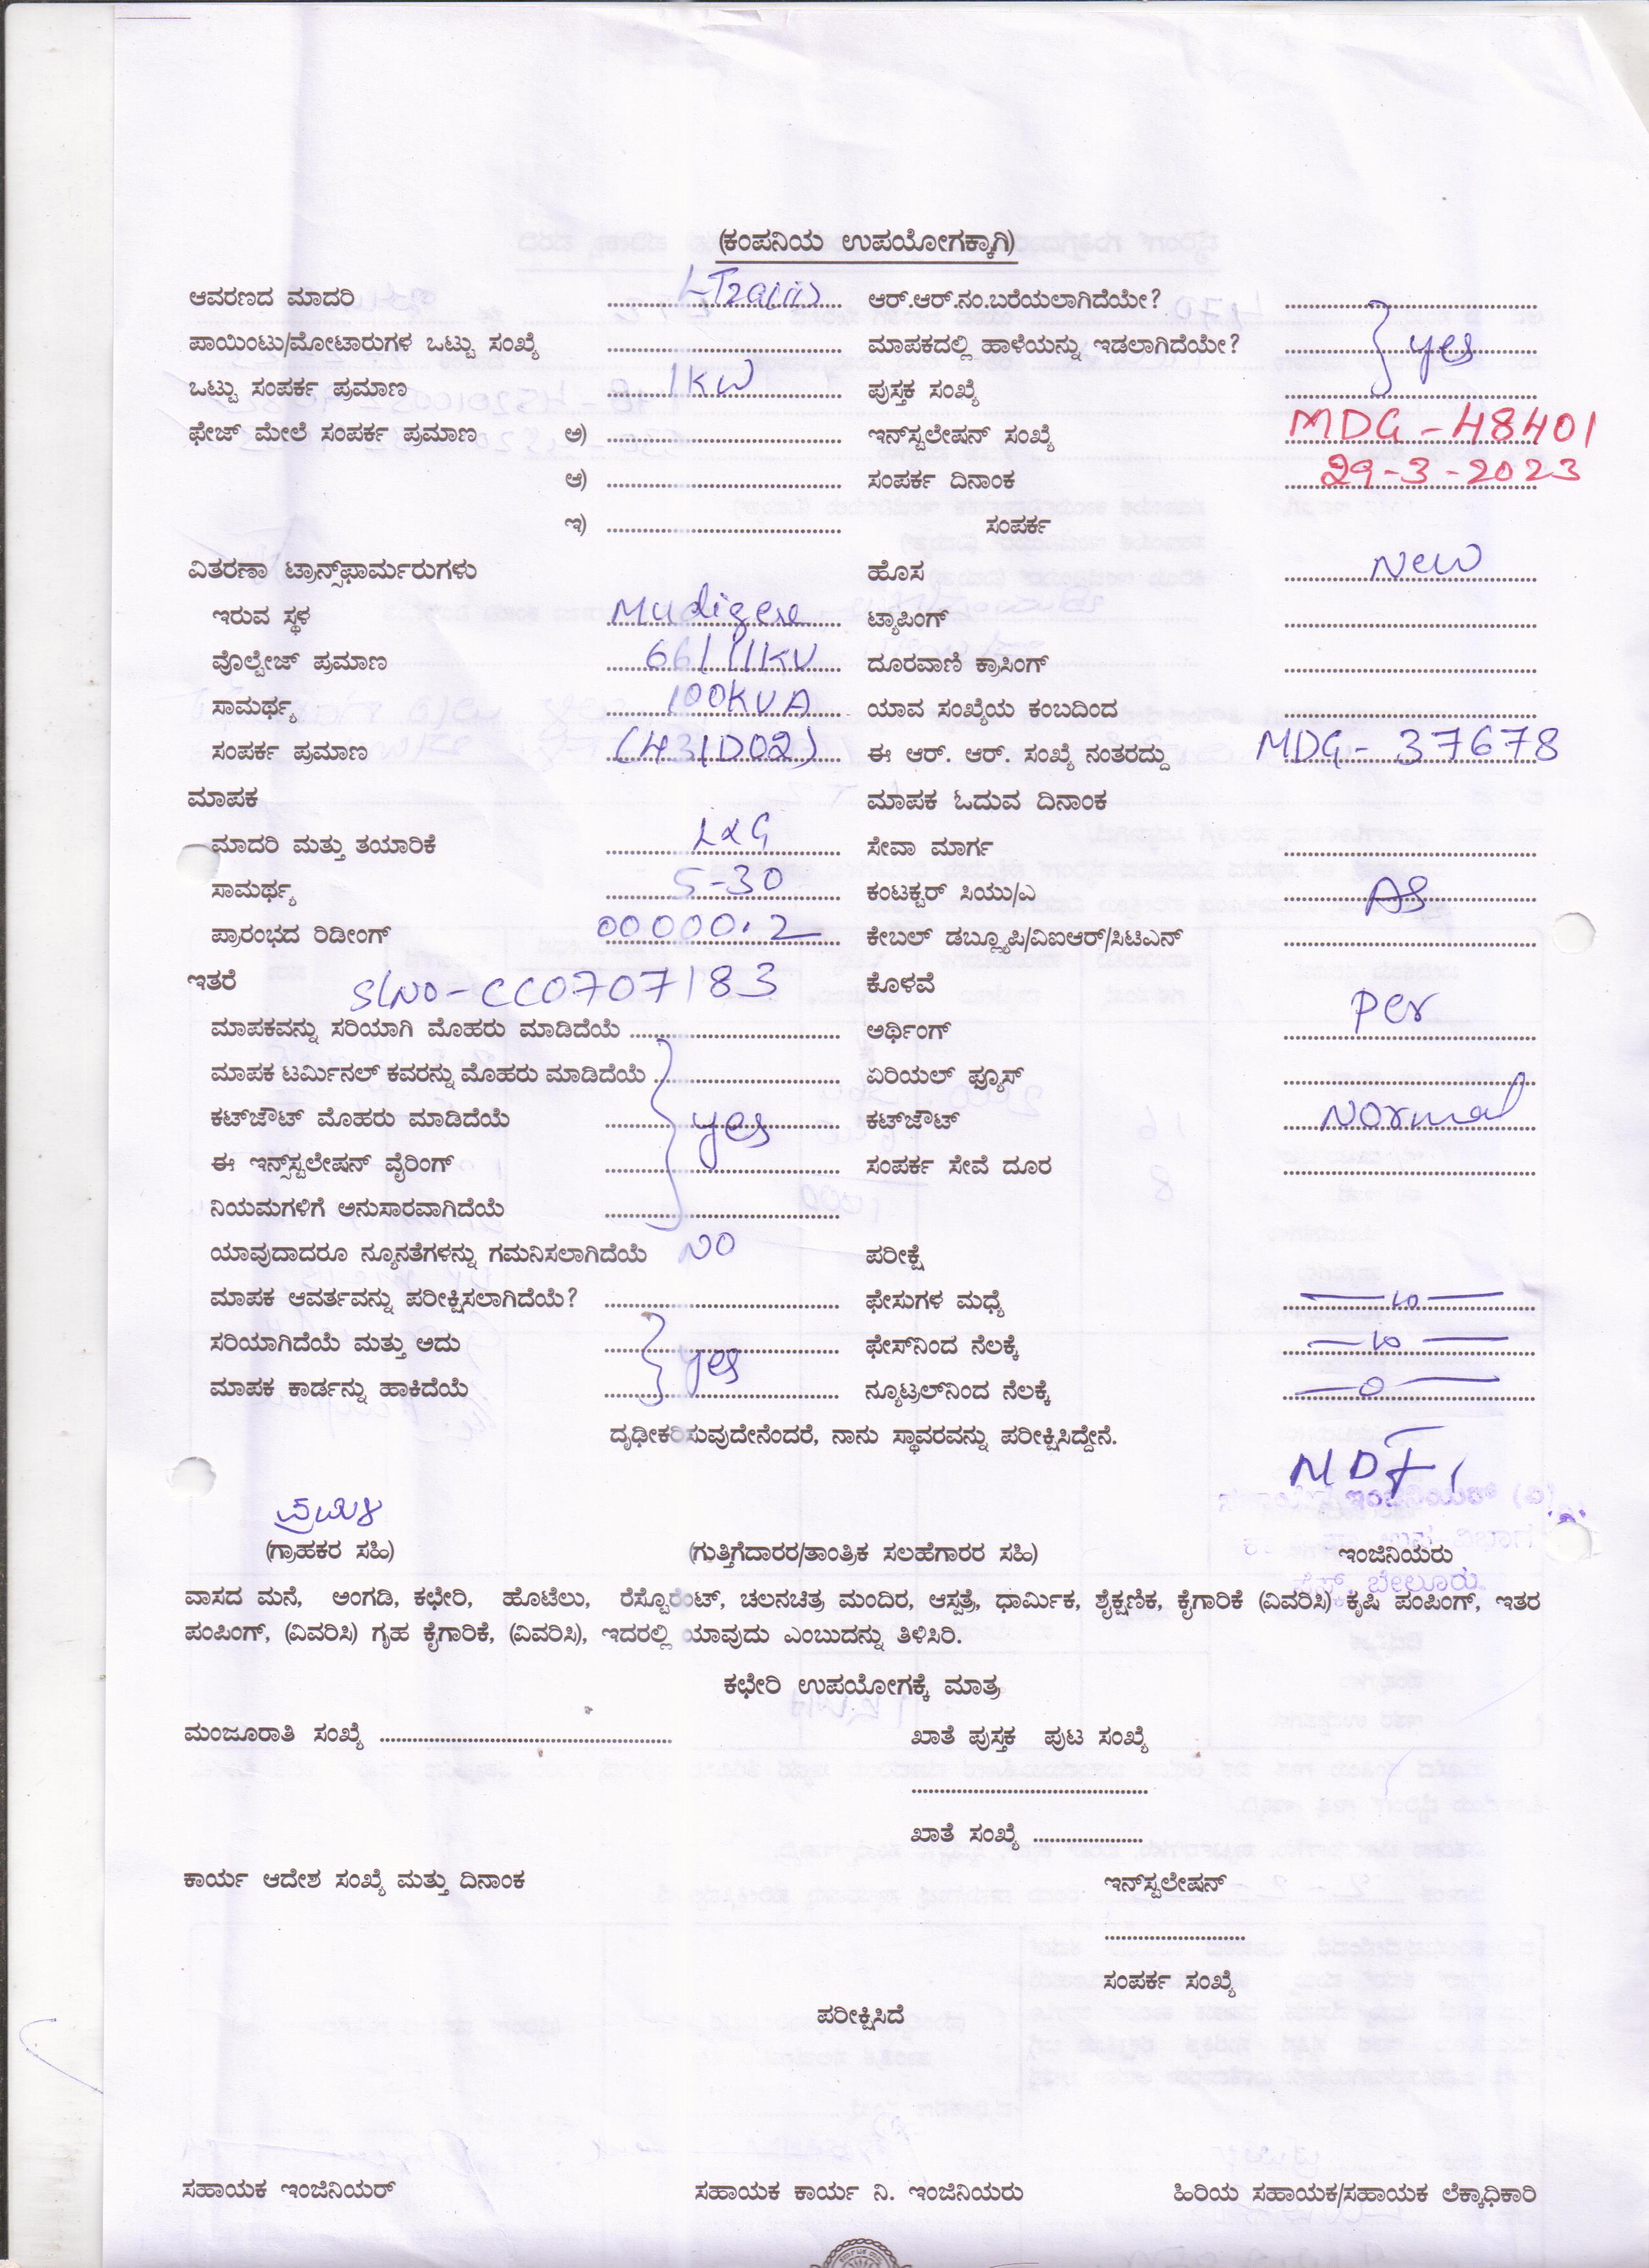 (ಕಂಪನಿಯ ಉಪಯೋಗಕ್ಕಾಗಿ)
ಆವರಣದ ಮಾದರಿ LT2a(iii) ಆರ್.ಆರ್.ನಂ.ಬರೆಯಲಾಗಿದೆಯೇ?
ಪಾಯಿಂಟು/ಮೋಟಾರುಗಳ ಒಟ್ಟು ಸಂಖ್ಯೆ ಮಾಪಕದಲ್ಲಿ ಹಾಳೆಯನ್ನು ಇಡಲಾಗಿದೆಯೇ? yes
ಒಟ್ಟು ಸಂಪರ್ಕ ಪ್ರಮಾಣ 1KW ಪುಸ್ತಕ ಸಂಖ್ಯೆ
ಫೇಜ್ ಮೇಲೆ ಸಂಪರ್ಕ ಪ್ರಮಾಣ ಅ) ಇನ್‌ಸ್ಟಲೇಷನ್ ಸಂಖ್ಯೆ MDG-48401
ಆ) ಸಂಪರ್ಕ ದಿನಾಂಕ 29-3-2023
ಇ) ಸಂಪರ್ಕ
ವಿತರಣಾ ಟ್ರಾನ್ಸ್‌ಫಾರ್ಮರುಗಳು ಹೊಸ New
ಇರುವ ಸ್ಥಳ Mudigere ಟ್ಯಾಪಿಂಗ್
ವೊಲ್ಟೇಜ್ ಪ್ರಮಾಣ 66/11KV ದೂರವಾಣಿ ಕ್ರಾಸಿಂಗ್
ಸಾಮರ್ಥ್ಯ 100KVA ಯಾವ ಸಂಖ್ಯೆಯ ಕಂಬದಿಂದ
ಸಂಪರ್ಕ ಪ್ರಮಾಣ (431D02) ಈ ಆರ್. ಆರ್. ಸಂಖ್ಯೆ ನಂತರದ್ದು MDG-37678
ಮಾಪಕ ಮಾಪಕ ಓದುವ ದಿನಾಂಕ
ಮಾದರಿ ಮತ್ತು ತಯಾರಿಕೆ L&G ಸೇವಾ ಮಾರ್ಗ
ಸಾಮರ್ಥ್ಯ 5-30 ಕಂಟಕ್ಟರ್ ಸಿಯು/ಎ As
ಪ್ರಾರಂಭದ ರಿಡೀಂಗ್ 00000.2 ಕೇಬಲ್ ಡಬ್ಲ್ಯೂಪಿ/ವಿಐಆರ್/ಸಿಟಿಎನ್
ಇತರೆ SlNO-CC0707183 ಕೊಳವೆ
ಮಾಪಕವನ್ನು ಸರಿಯಾಗಿ ಮೊಹರು ಮಾಡಿದೆಯೆ ಅರ್ಥಿಂಗ್ per
ಮಾಪಕ ಟರ್ಮಿನಲ್ ಕವರನ್ನು ಮೊಹರು ಮಾಡಿದೆಯೆ ಏರಿಯಲ್ ಫ್ಯೂಸ್
ಕಟ್‌ಜೌಟ್ ಮೊಹರು ಮಾಡಿದೆಯೆ yes ಕಟ್‌ಜೌಟ್ Normal
ಈ ಇನ್ಸ್‌ಸ್ಟಲೇಷನ್ ವೈರಿಂಗ್ ಸಂಪರ್ಕ ಸೇವೆ ದೂರ
ನಿಯಮಗಳಿಗೆ ಅನುಸಾರವಾಗಿದೆಯೆ
ಯಾವುದಾದರೂ ನ್ಯೂನತೆಗಳನ್ನು ಗಮನಿಸಲಾಗಿದೆಯೆ NO ಪರೀಕ್ಷೆ
ಮಾಪಕ ಆವರ್ತವನ್ನು ಪರೀಕ್ಷಿಸಲಾಗಿದೆಯೆ? ಫೇಸುಗಳ ಮಧ್ಯೆ
ಸರಿಯಾಗಿದೆಯೆ ಮತ್ತು ಅದು yes ಫೇಸ್‌ನಿಂದ ನೆಲಕ್ಕೆ
ಮಾಪಕ ಕಾರ್ಡನ್ನು ಹಾಕಿದೆಯೆ ನ್ಯೂಟ್ರಲ್‌ನಿಂದ ನೆಲಕ್ಕೆ —0—
ದೃಢೀಕರಿಸುವುದೇನೆಂದರೆ, ನಾನು ಸ್ಥಾವರವನ್ನು ಪರೀಕ್ಷಿಸಿದ್ದೇನೆ.
(ಗ್ರಾಹಕರ ಸಹಿ) (ಗುತ್ತಿಗೆದಾರರ/ತಾಂತ್ರಿಕ ಸಲಹೆಗಾರರ ಸಹಿ) ಇಂಜಿನಿಯರು
ಬೇಲೂರು
ವಾಸದ ಮನೆ, ಅಂಗಡಿ, ಕಛೇರಿ, ಹೊಟೆಲು, ರೆಸ್ಟೊರೆಂಟ್, ಚಲನಚಿತ್ರ ಮಂದಿರ, ಆಸ್ಪತ್ರೆ, ಧಾರ್ಮಿಕ, ಶೈಕ್ಷಣಿಕ, ಕೈಗಾರಿಕೆ (ವಿವರಿಸಿ) ಕೃಷಿ ಪಂಪಿಂಗ್, ಇತರ
ಪಂಪಿಂಗ್, (ವಿವರಿಸಿ) ಗೃಹ ಕೈಗಾರಿಕೆ, (ವಿವರಿಸಿ), ಇದರಲ್ಲಿ ಯಾವುದು ಎಂಬುದನ್ನು ತಿಳಿಸಿರಿ.
ಕಛೇರಿ ಉಪಯೋಗಕ್ಕೆ ಮಾತ್ರ
ಮಂಜೂರಾತಿ ಸಂಖ್ಯೆ ಖಾತೆ ಪುಸ್ತಕ ಪುಟ ಸಂಖ್ಯೆ
ಖಾತೆ ಸಂಖ್ಯೆ
ಕಾರ್ಯ ಆದೇಶ ಸಂಖ್ಯೆ ಮತ್ತು ದಿನಾಂಕ ಇನ್‌ಸ್ಟಲೇಷನ್
ಸಂಪರ್ಕ ಸಂಖ್ಯೆ
ಪರೀಕ್ಷಿಸಿದೆ
ಸಹಾಯಕ ಇಂಜಿನಿಯರ್ ಸಹಾಯಕ ಕಾರ್ಯ ನಿ. ಇಂಜಿನಿಯರು ಹಿರಿಯ ಸಹಾಯಕ/ಸಹಾಯಕ ಲೆಕ್ಕಾಧಿಕಾರಿ